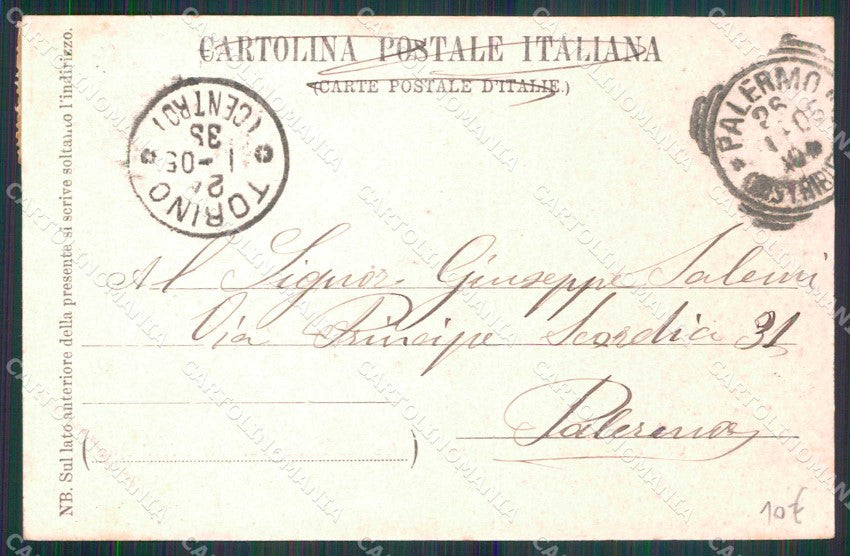 CARTOLINA POSTALE ITALIANA
(CARTE POSTALE D'ITALIE.)
TORINO
(CENTRO)
24
1-05
3S
PALERMO
26
1 05
10
Al Signor Giuseppe Salemi
Via Principe Scordia 31
Palermo
NB. Sul lato anteriore della presente si scrive soltanto l'indirizzo.
10€
CARTOLINOMANIA